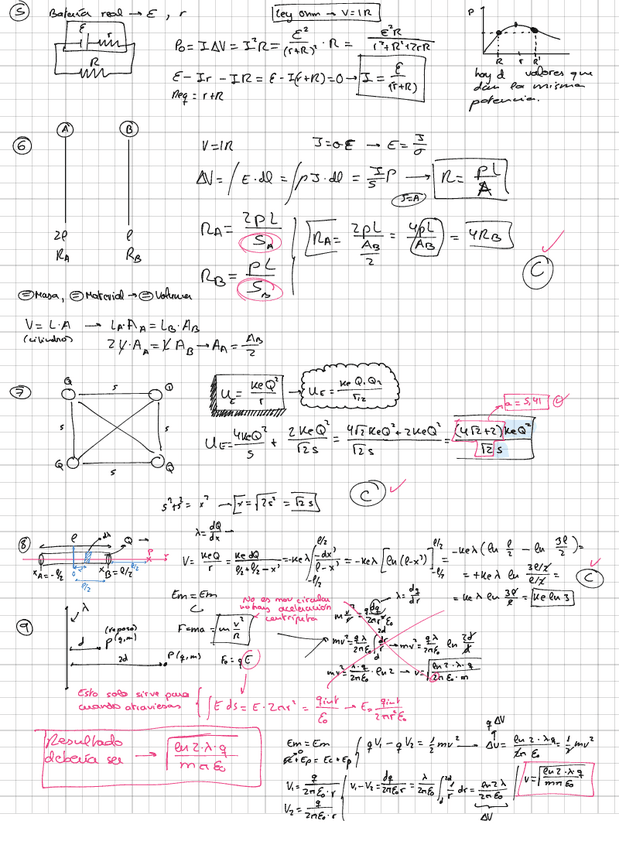 ⑤ Batería real → ε, r
Ley Ohm → V=IR
ε
r
R
P₀ = I ΔV = I²R = ε²/(r+R)² · R = ε²R/(r²+R²+2rR)
ε - Ir - IR = ε - I(r+R) = 0 → I = ε/(r+R)
Req = r+R
P
R r R'
hay 2 valores que
dan la misma
potencia.
⑥ A B
V=IR J=σE → E = J/σ
ΔV = ∫E·dl = ∫ρJ·dl = I/S ρ → R = ρL/A
S=A
2ℓ ℓ
RA RB
RA = 2ρL/SA
RB = ρL/SB
RA = 2ρL/(AB/2) = 4ρL/AB = 4RB
C
= Masa, = Material → = Volumen
V = L·A → LA·AA = LB·AB
(cilindro)
2ℓ·AA = ℓ AB → AA = AB/2
⑦ Q s Q
s s
Q s Q
UE = KeQ²/r → UE = Ke Q₁Q₂/r₁₂
a = 5,41
UE = 4KeQ²/s + 2KeQ²/√2s = (4√2KeQ²+2KeQ²)/√2s = (4√2+2)KeQ²/√2s
s²+s² = x² → x = √2s² = √2s
C
⑧ ℓ dx Q →
λ = dQ/dx
xA = -ℓ/2 xB = ℓ/2 P
V = KeQ/r = KedQ/(ℓ/2+ℓ/2-x') = -Keλ∫-dx'/(ℓ-x') = -Keλ[ln(ℓ-x')] = -Keλ(ln ℓ/2 - ln 3ℓ/2) =
= +Keλ ln (3ℓ/2)/(ℓ/2) =
= Keλ ln 3ℓ/ℓ = Keλ ln 3
C
⑨ λ
d (reposo)
P(q,m)
2d P(q,m)
Em = Em
No es mov circular
no hay aceleración
centrípeta
F=ma = m v²/R
Fe = qE
λ = dq/dr
mv² = qλ/2πε₀ ∫dr/r → mv² = qλ/2πε₀ ln 2d/d
mv² = λ·q/2πε₀ · ln 2 → v = √(ln2·λ·q/2πε₀·m)
Esto solo sirve para
cuando atraviesas
∫E ds = E·2πr² = qint/ε₀ → E = qint/2πr²ε₀
Resultado
debería ser → √(ln2·λ·q/mπε₀)
Em = Em
Ec+Ep = Ec+Ep
qV₁ - qV₂ = ½mv² → ΔV = ln2·λ·q/2πε₀ = ½mv²
q ΔV
V₁ = q/2πε₀·r
V₂ = q/2πε₀·r
V₁-V₂ = dq/2πε₀·r = λ/2πε₀ ∫ 1/r dr = ln2λ/2πε₀
ΔV
v = √(ln2·λq/mπε₀)